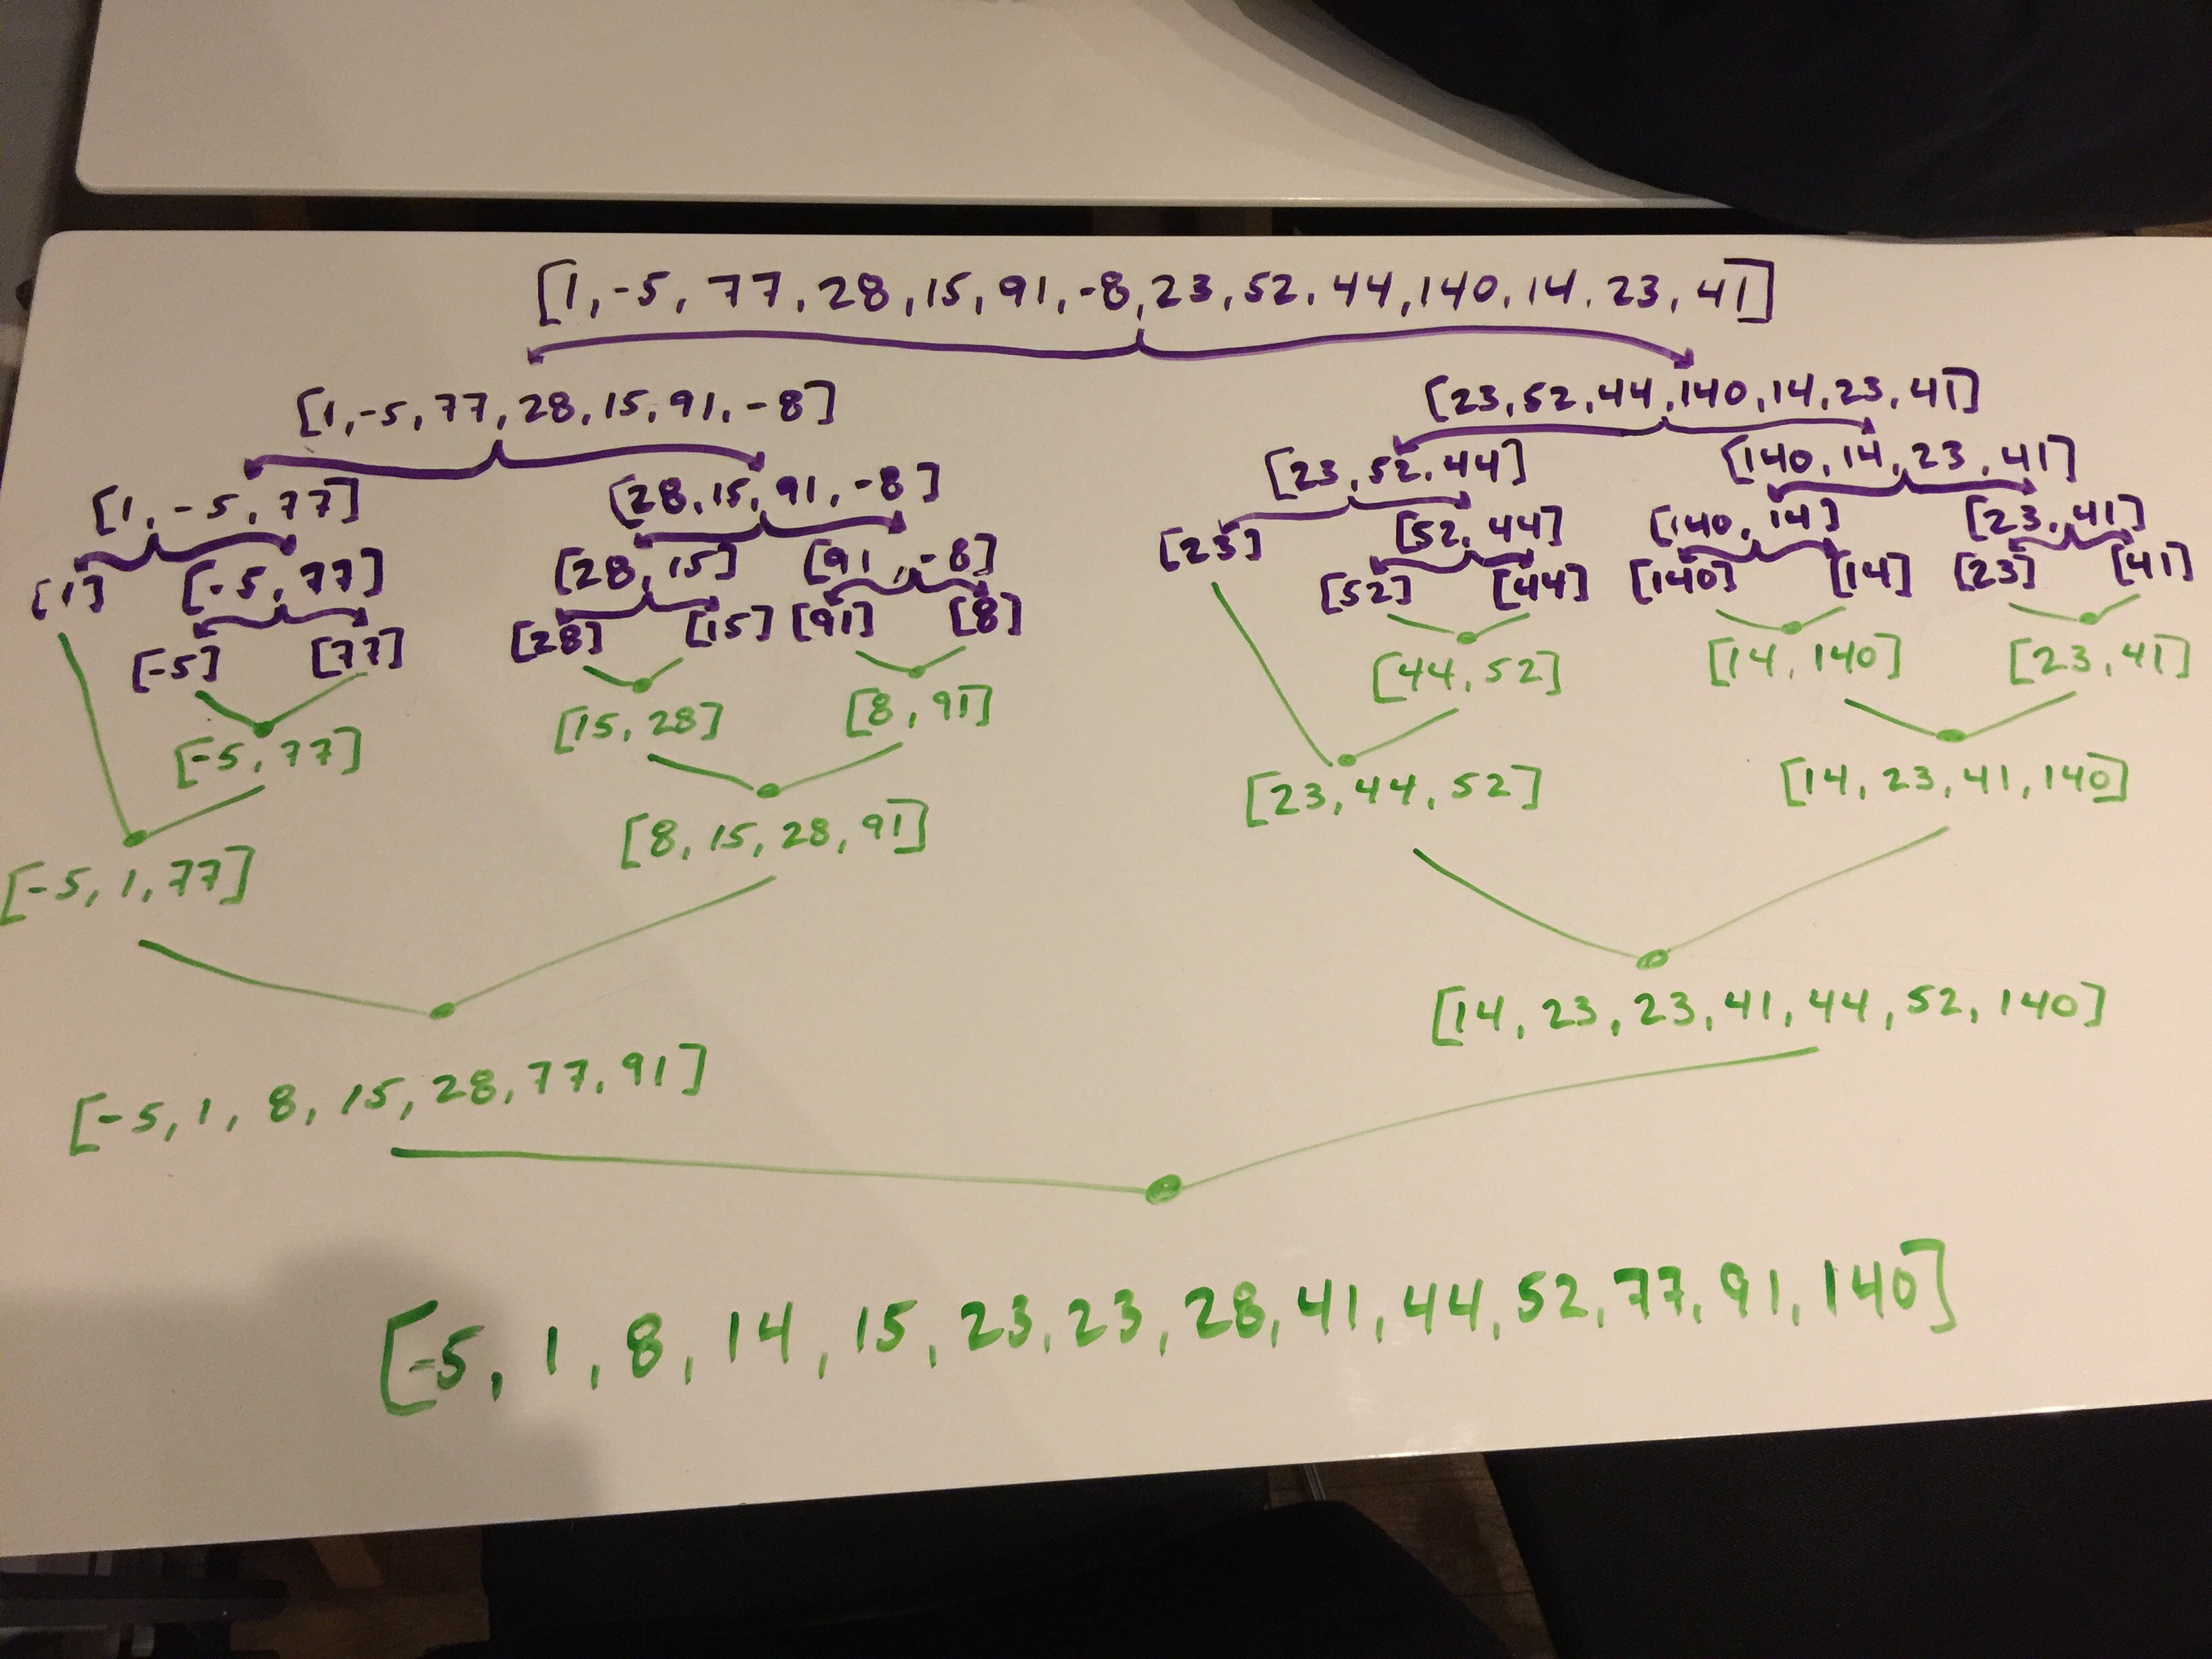 [1,-5, 77, 28, 15, 91, -8, 23, 52, 44, 140, 14, 23, 41]
[1,-5, 77, 28, 15, 91, -8]
[23, 52, 44, 140, 14, 23, 41]
[1, -5, 77]
[28, 15, 91, -8]
[23, 52, 44]
[140, 14, 23, 41]
[1]
[-5, 77]
[28, 15]
[91, -8]
[23]
[52, 44]
[140, 14]
[23, 41]
[-5]
[77]
[28]
[15]
[91]
[8]
[52]
[44]
[140]
[14]
[23]
[41]
[-5, 77]
[15, 28]
[8, 91]
[44, 52]
[14, 140]
[23, 41]
[-5, 1, 77]
[8, 15, 28, 91]
[23, 44, 52]
[14, 23, 41, 140]
[-5, 1, 8, 15, 28, 77, 91]
[14, 23, 23, 41, 44, 52, 140]
[-5, 1, 8, 14, 15, 23, 23, 28, 41, 44, 52, 77, 91, 140]